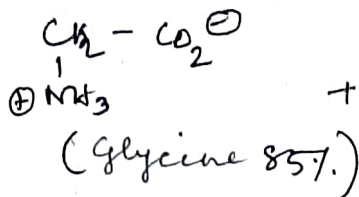 CH2 - CO2⊖
⊕NH3 +
(Glycine 85%.)